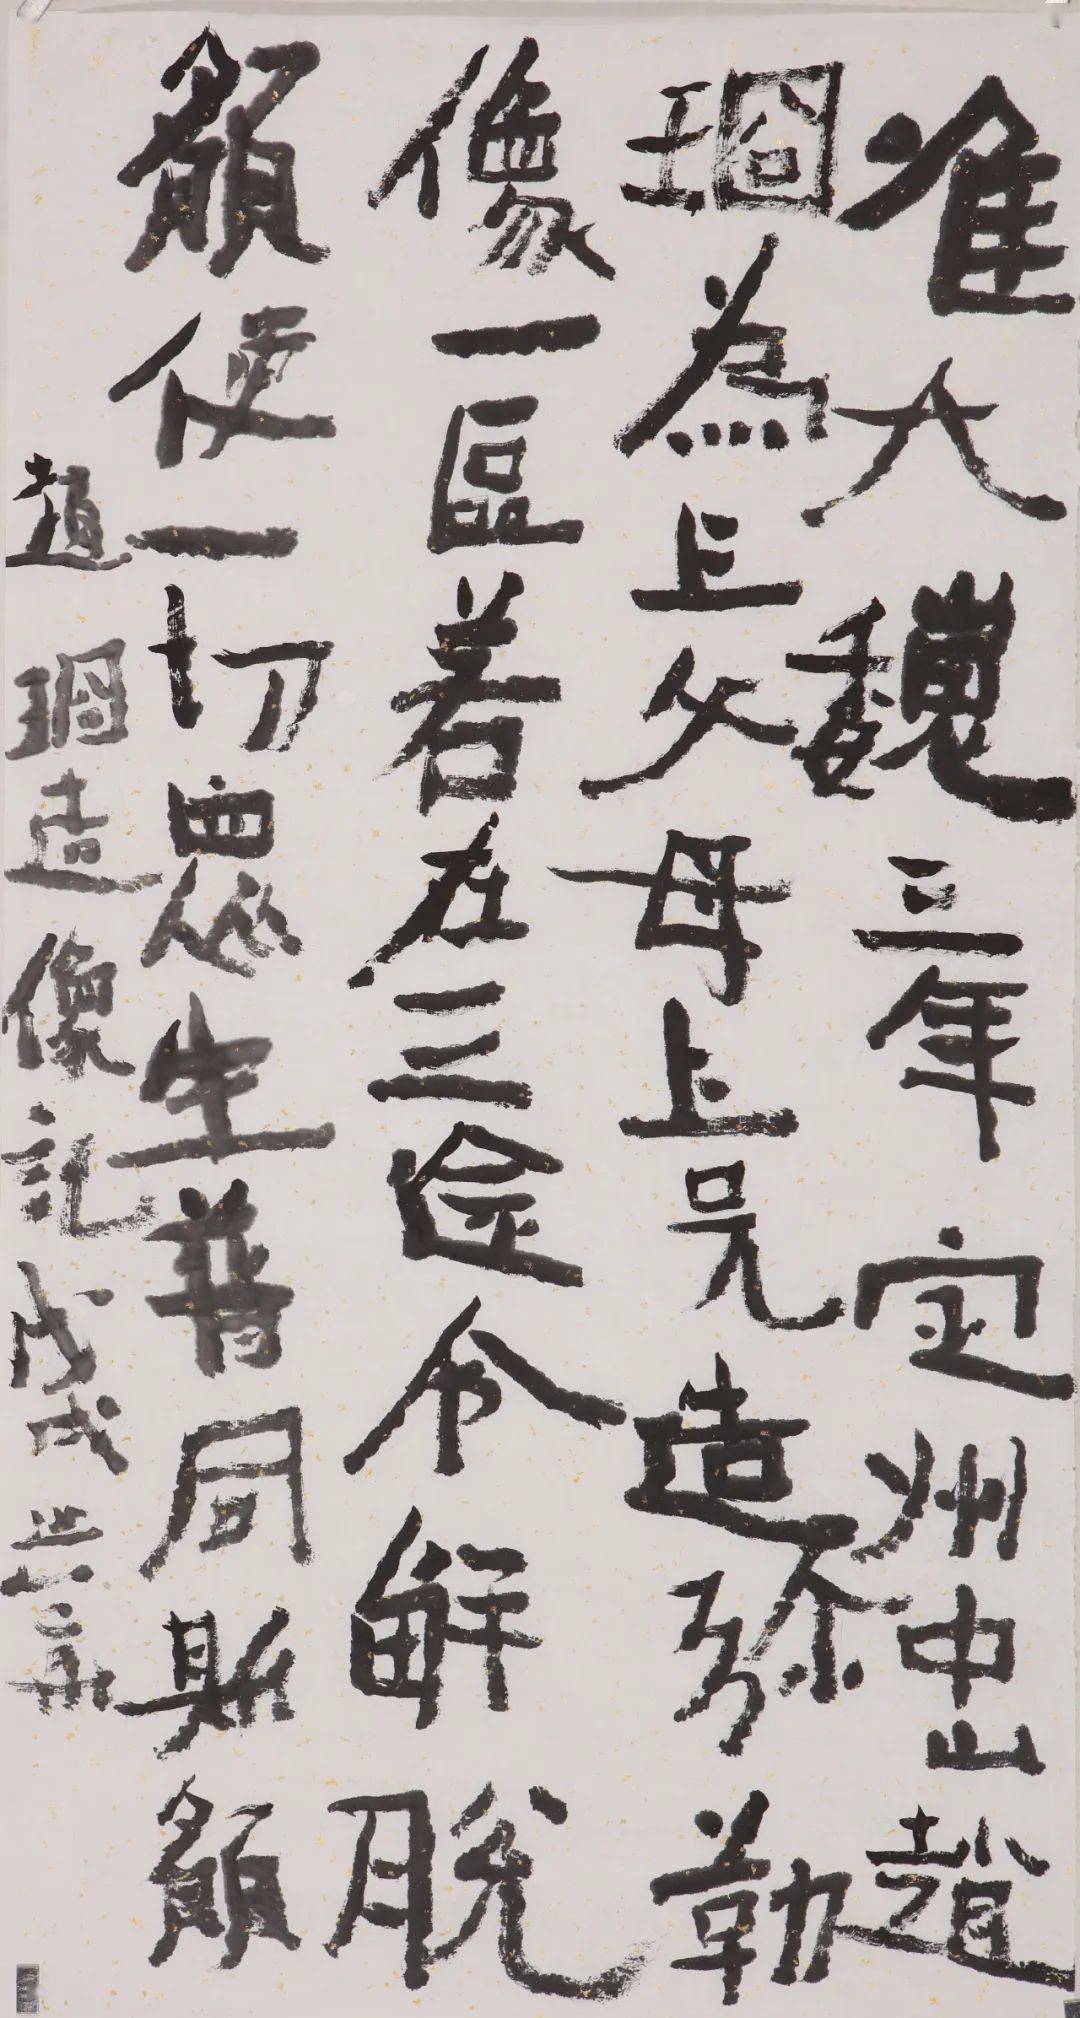 唯大魏三年定州中山趙
琱為上父母上兄造弥勒
像一區若在三途令解脫
願使一切眾生普同斯願
趙琱造像記戊戌